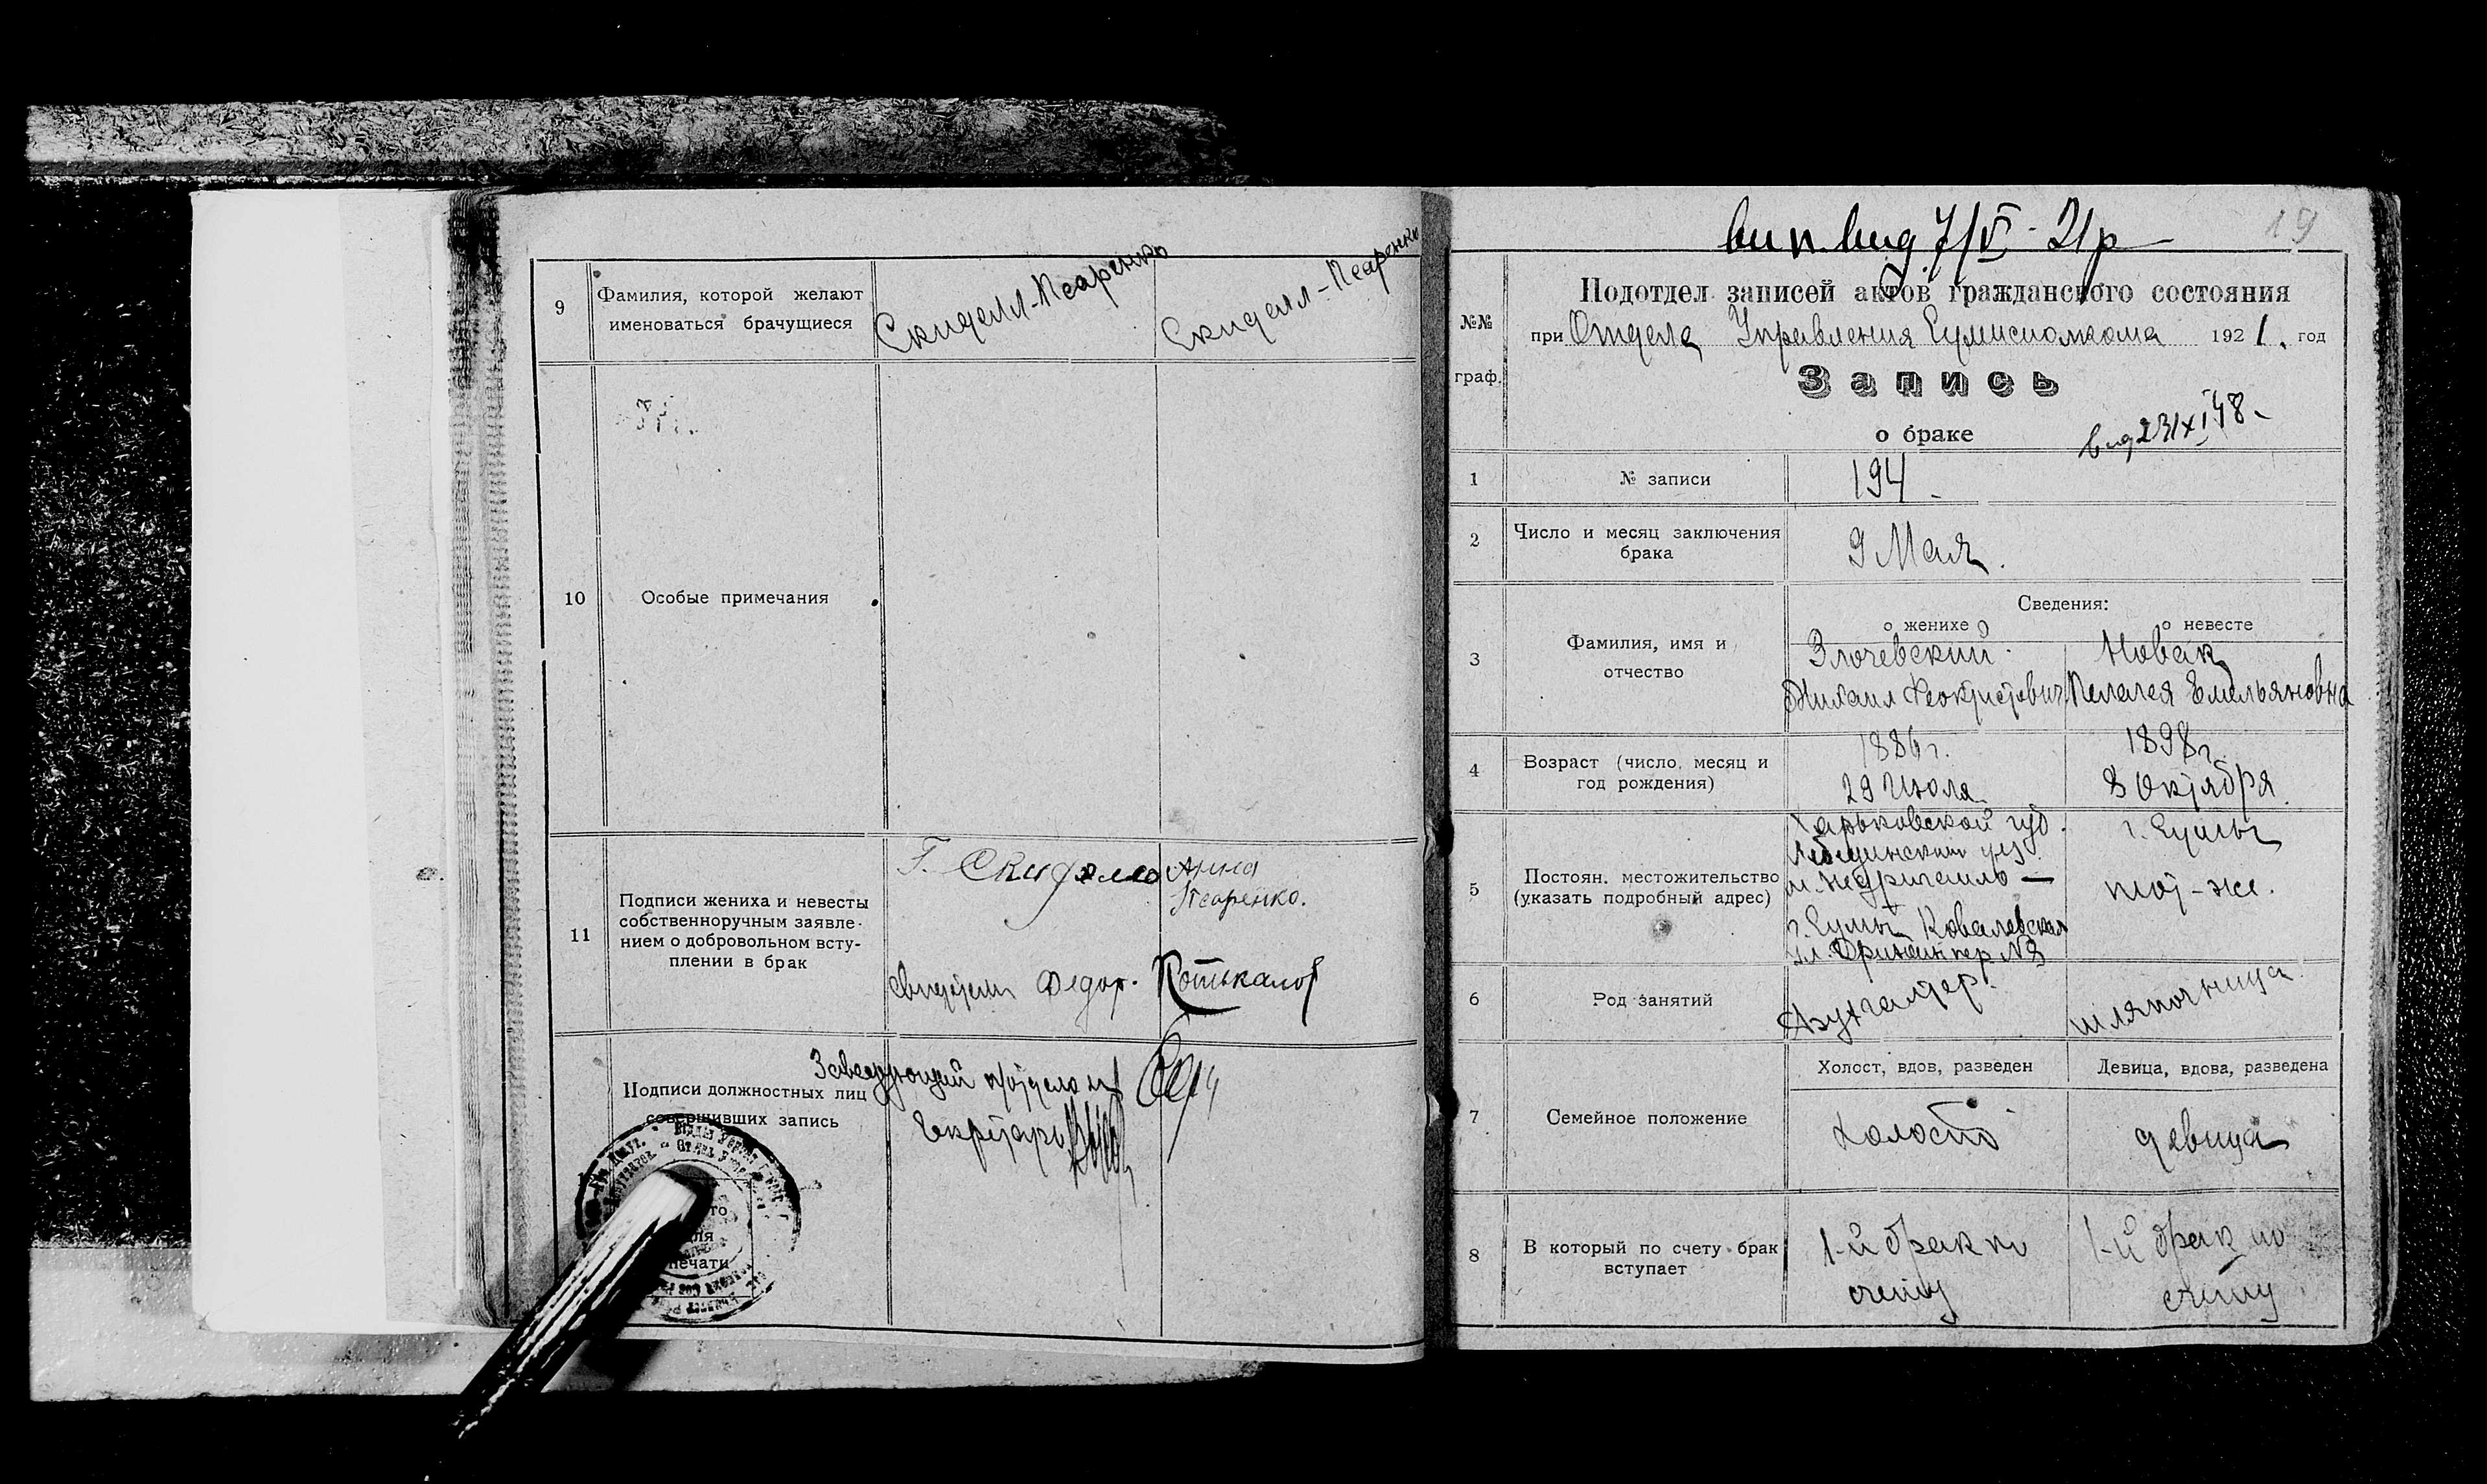 9
Фамилия, которой желают
именоваться брачущиеся
Скиделл-Псаренко
Скиделл-Псаренко
10
Особые примечания
11
Подписи жениха и невесты
собственноручным заявле-
нием о добровольном всту-
плении в брак
Г. Скиделло
Анна
Псаренко.
Свидетель Федор. Котькалов
Подписи должностных лиц
совершивших запись
Заведующий п/отделом
Секретарь
печати
19
вип. вид 7/VI - 21р
№№
граф.
Подотдел записей актов гражданского состояния
при Отдела Управления Сумисполкома 1921. год
Запись
о браке
вид 23/XI 48
1
№ записи
194
2
Число и месяц заключения
брака
9 Мая.
Сведения:
о женихе
о невесте
3
Фамилия, имя и
отчество
Злочевский
Михаил Феоктистович
Новак
Пелагея Емельяновна
4
Возраст (число, месяц и
год рождения)
1886 г.
29 Июля
1898 г.
8 Октября.
5
Постоян. местожительство
(указать подробный адрес)
Харьковской губ.
Лебединский уез.
м. Недригайло —
г. Сумы Ковалевская
ул. пер № 3
г. Сумы
той-же.
6
Род занятий
Бухгалтер.
шляпочница
7
Семейное положение
Холост, вдов, разведен
Девица, вдова, разведена
холост
девица
8
В который по счету брак
вступает
1-й брак по
счету
1-й брак по
счету